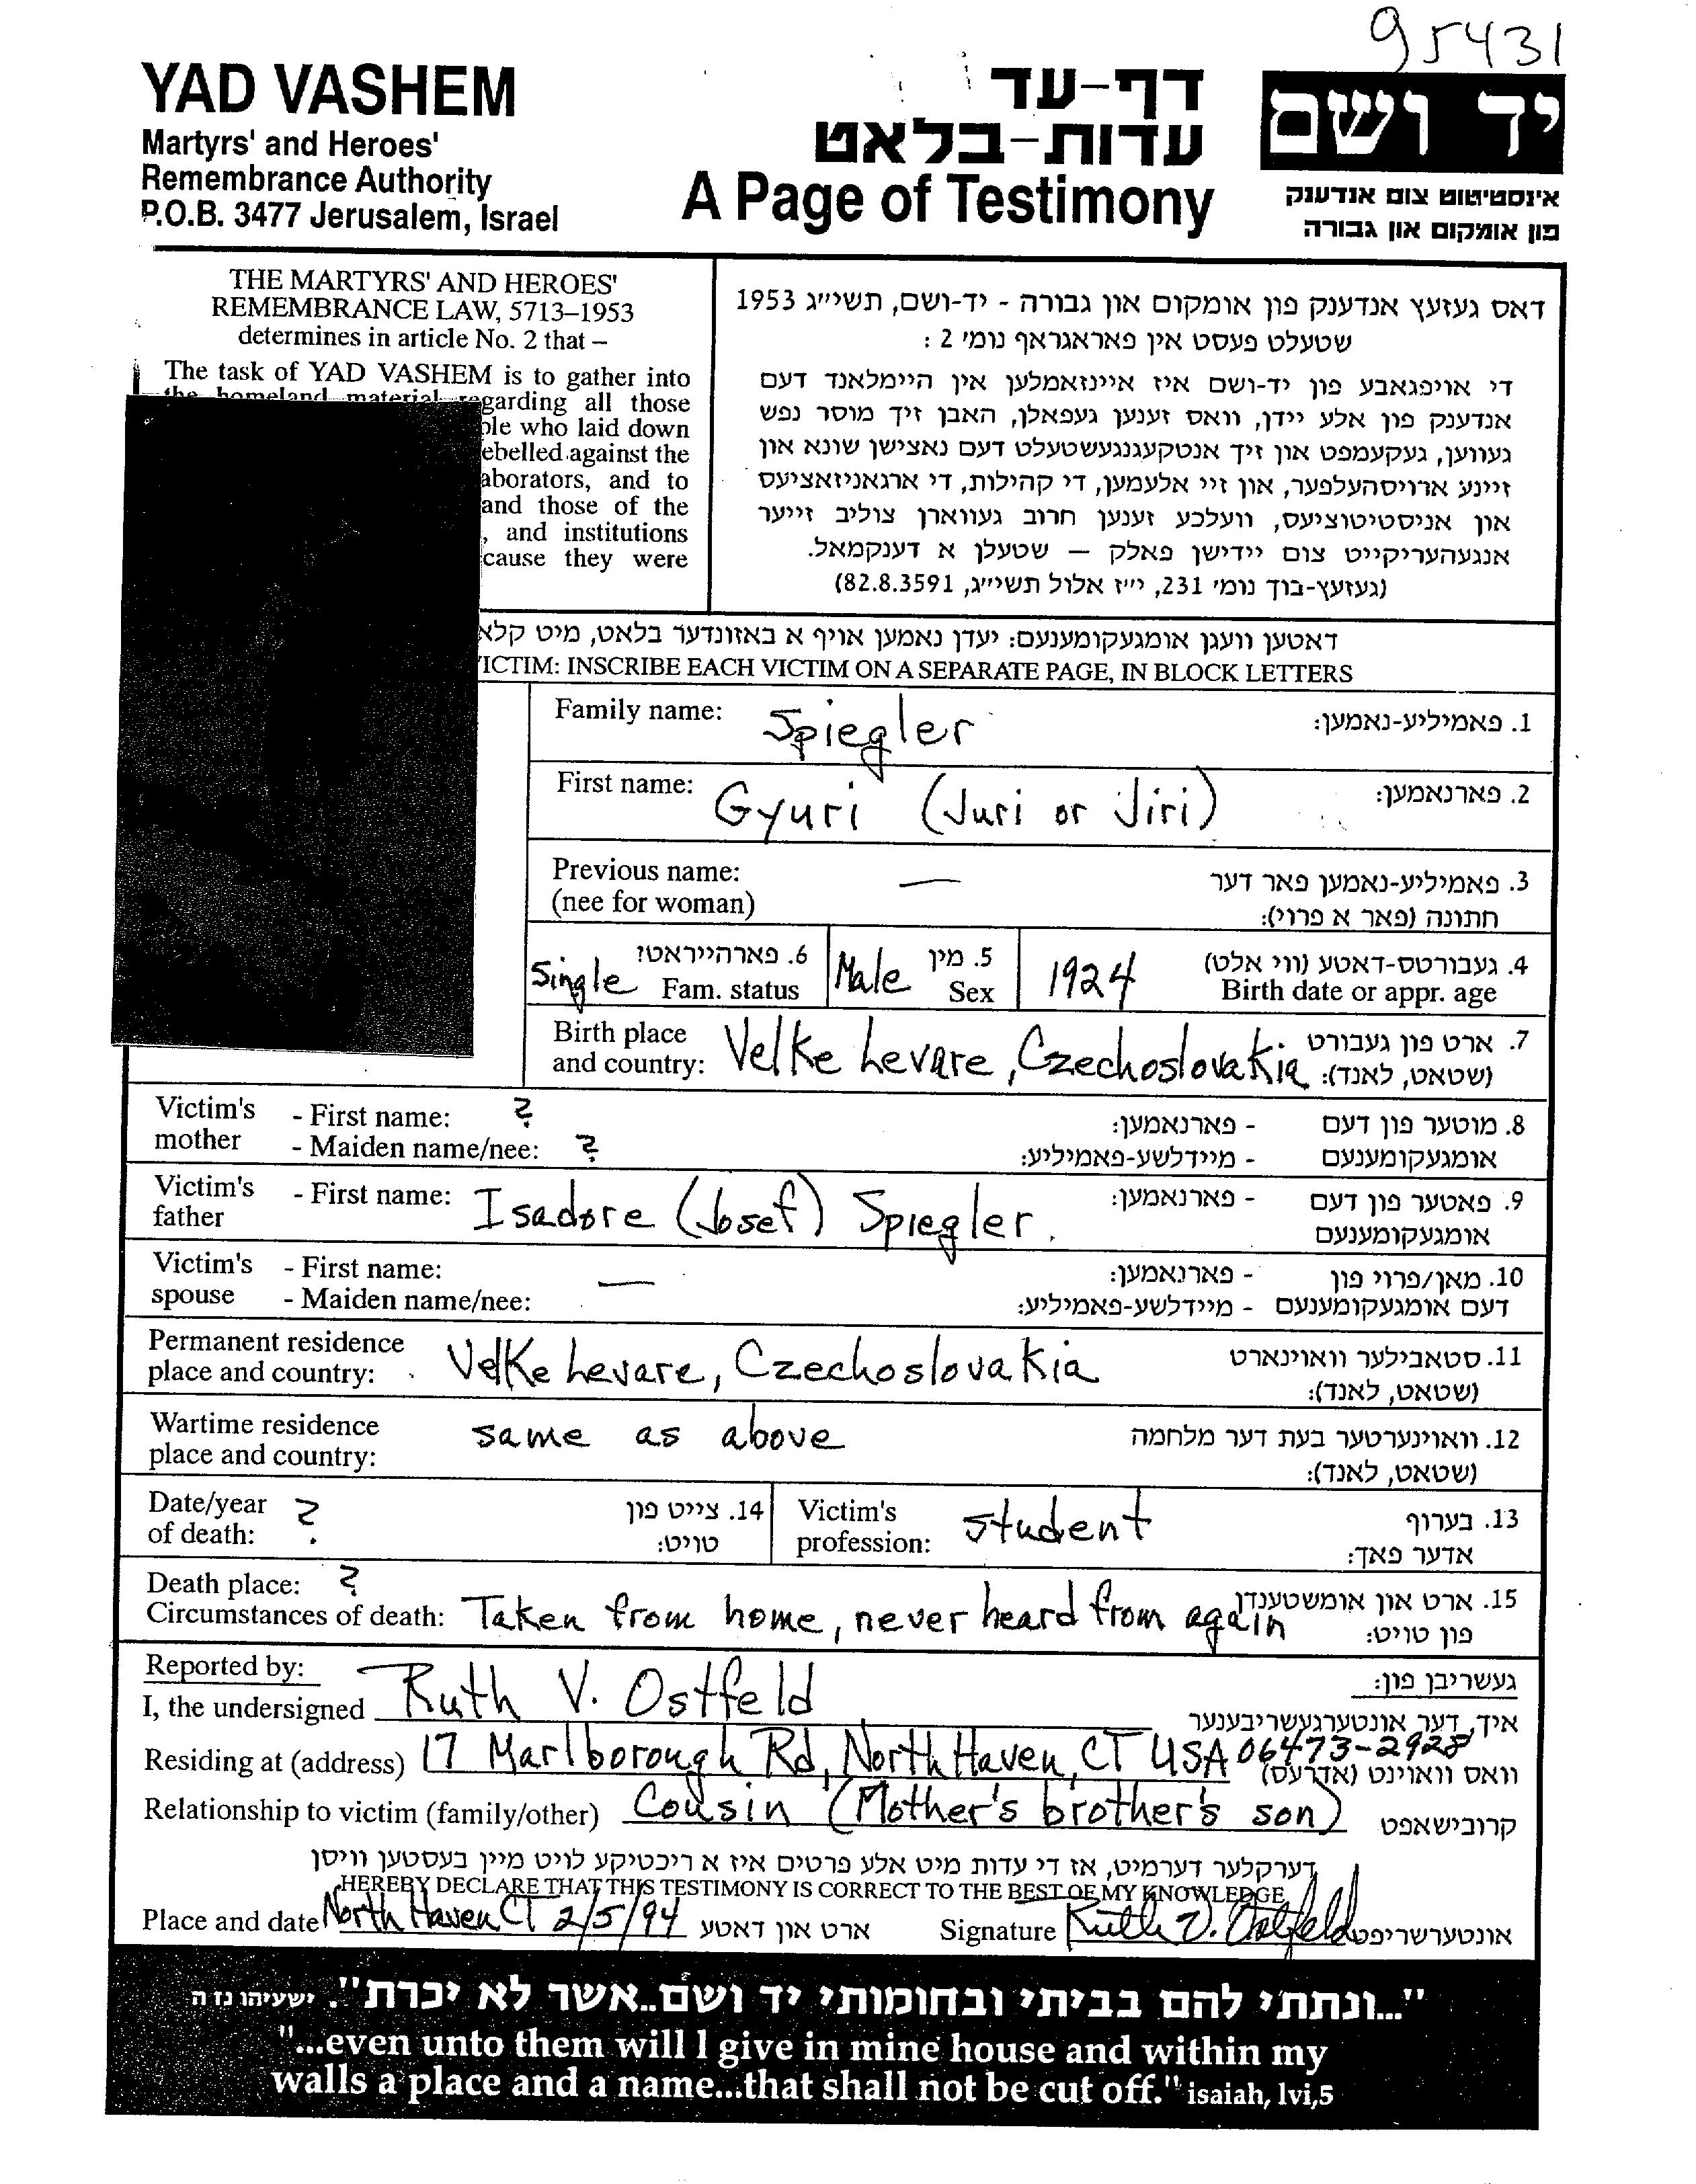 95431
YAD VASHEM
Martyrs' and Heroes'
Remembrance Authority
P.O.B. 3477 Jerusalem, Israel
דף-עד
עדות-בלאט
A Page of Testimony
יד ושם
אינסטיטוט צום אנדענק
פון אומקום און גבורה
THE MARTYRS' AND HEROES'
REMEMBRANCE LAW, 5713–1953
determines in article No. 2 that –
The task of YAD VASHEM is to gather into
the homeland material regarding all those
ple who laid down
ebelled against the
aborators, and to
and those of the
, and institutions
cause they were
דאס געזעץ אנדענק פון אומקום און גבורה - יד-ושם, תשי״ג 1953
שטעלט פעסט אין פאראגראף נומ׳ 2 :
די אויפגאבע פון יד-ושם איז איינזאמלען אין היימלאנד דעם
אנדענק פון אלע יידן, וואס זענען געפאלן, האבן זיך מוסר נפש
געווען, געקעמפט און זיך אנטקעגנגעשטעלט דעם נאצישן שונא און
זיינע ארויסהעלפער, און זיי אלעמען, די קהילות, די ארגאניזאציעס
און אניסטיטוציעס, וועלכע זענען חרוב געווארן צוליב זייער
אנגעהעריקייט צום יידישן פאלק — שטעלן א דענקמאל.
(געזעץ-בוך נומ׳ 231, י״ז אלול תשי״ג, 82.8.3591)
דאטען וועגן אומגעקומענעם: יעדן נאמען אויף א באזונדער בלאט, מיט קלא
ICTIM: INSCRIBE EACH VICTIM ON A SEPARATE PAGE, IN BLOCK LETTERS
Family name: Spiegler 1. פאמיליע-נאמען:
First name: Gyuri (Juri or Jiri) 2. פארנאמען:
Previous name: — 3. פאמיליע-נאמען פאר דער
(nee for woman) חתונה (פאר א פרוי):
Single 6. פארהייראט? Male 5. מין 1924 4. געבורטס-דאטע (ווי אלט)
Fam. status Sex Birth date or appr. age
Birth place Velke Levare, Czechoslovakia 7. ארט פון געבורט
and country: (שטאט, לאנד):
Victim's - First name: ? - פארנאמען: 8. מוטער פון דעם
mother - Maiden name/nee: ? - מיידלשע-פאמיליע: אומגעקומענעם
Victim's - First name: Isadore (Josef) Spiegler. - פארנאמען: 9. פאטער פון דעם
father אומגעקומענעם
Victim's - First name: — - פארנאמען: 10. מאן/פרוי פון
spouse - Maiden name/nee: - מיידלשע-פאמיליע: דעם אומגעקומענעם
Permanent residence Velke Levare, Czechoslovakia 11. סטאבילער וואוינארט
place and country: (שטאט, לאנד):
Wartime residence same as above 12. וואוינערטער בעת דער מלחמה
place and country: (שטאט, לאנד):
Date/year ? 14. צייט פון Victim's student 13. בערוף
of death: טויט: profession: אדער פאך:
Death place: ? 15. ארט און אומשטענדן
Circumstances of death: Taken from home, never heard from again פון טויט:
Reported by: געשריבן פון:
I, the undersigned Ruth V. Ostfeld איך, דער אונטערגעשריבענער
Residing at (address) 17 Marlborough Rd, North Haven, CT USA 06473-2928 וואס וואוינט (אדרעס)
Relationship to victim (family/other) Cousin (Mother's brother's son) קרובישאפט
דערקלער דערמיט, אז די עדות מיט אלע פרטים איז א ריכטיקע לויט מיין בעסטען וויסן
HEREBY DECLARE THAT THIS TESTIMONY IS CORRECT TO THE BEST OF MY KNOWLEDGE
Place and date North Haven CT 2/5/94 ארט און דאטע Signature Ruth V. Ostfeld אונטערשריפט
"...ונתתי להם בביתי ובחומותי יד ושם..אשר לא יכרת". ישעיהו נז ה
"...even unto them will I give in mine house and within my
walls a place and a name...that shall not be cut off." isaiah, lvi,5